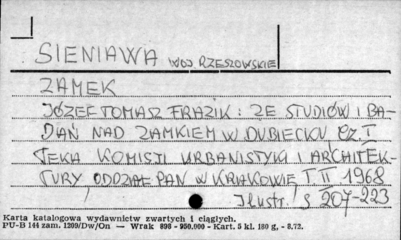 SIENIAWA WOJ RZESZOWSKIE
ZAMEK
JÓZEF TOMASZ FRAZIK: ZE STUDIÓW I BA-
DAŃ NAD ZAMKIEM W DUBIECKU CZ. I
TEKA KOMISJI URBANISTYKI I ARCHITEK-
TURY, ODDZIAŁ PAN W KRAKOWIE T II 1968
Ilustr. S 207-223
Karta katalogowa wydawnictw zwartych i ciągłych.
PU-B 144 zam. 1209/Dw/On — Wrak 898 - 950.000 - Kart. 5 kl. 180 g, - 8.72.